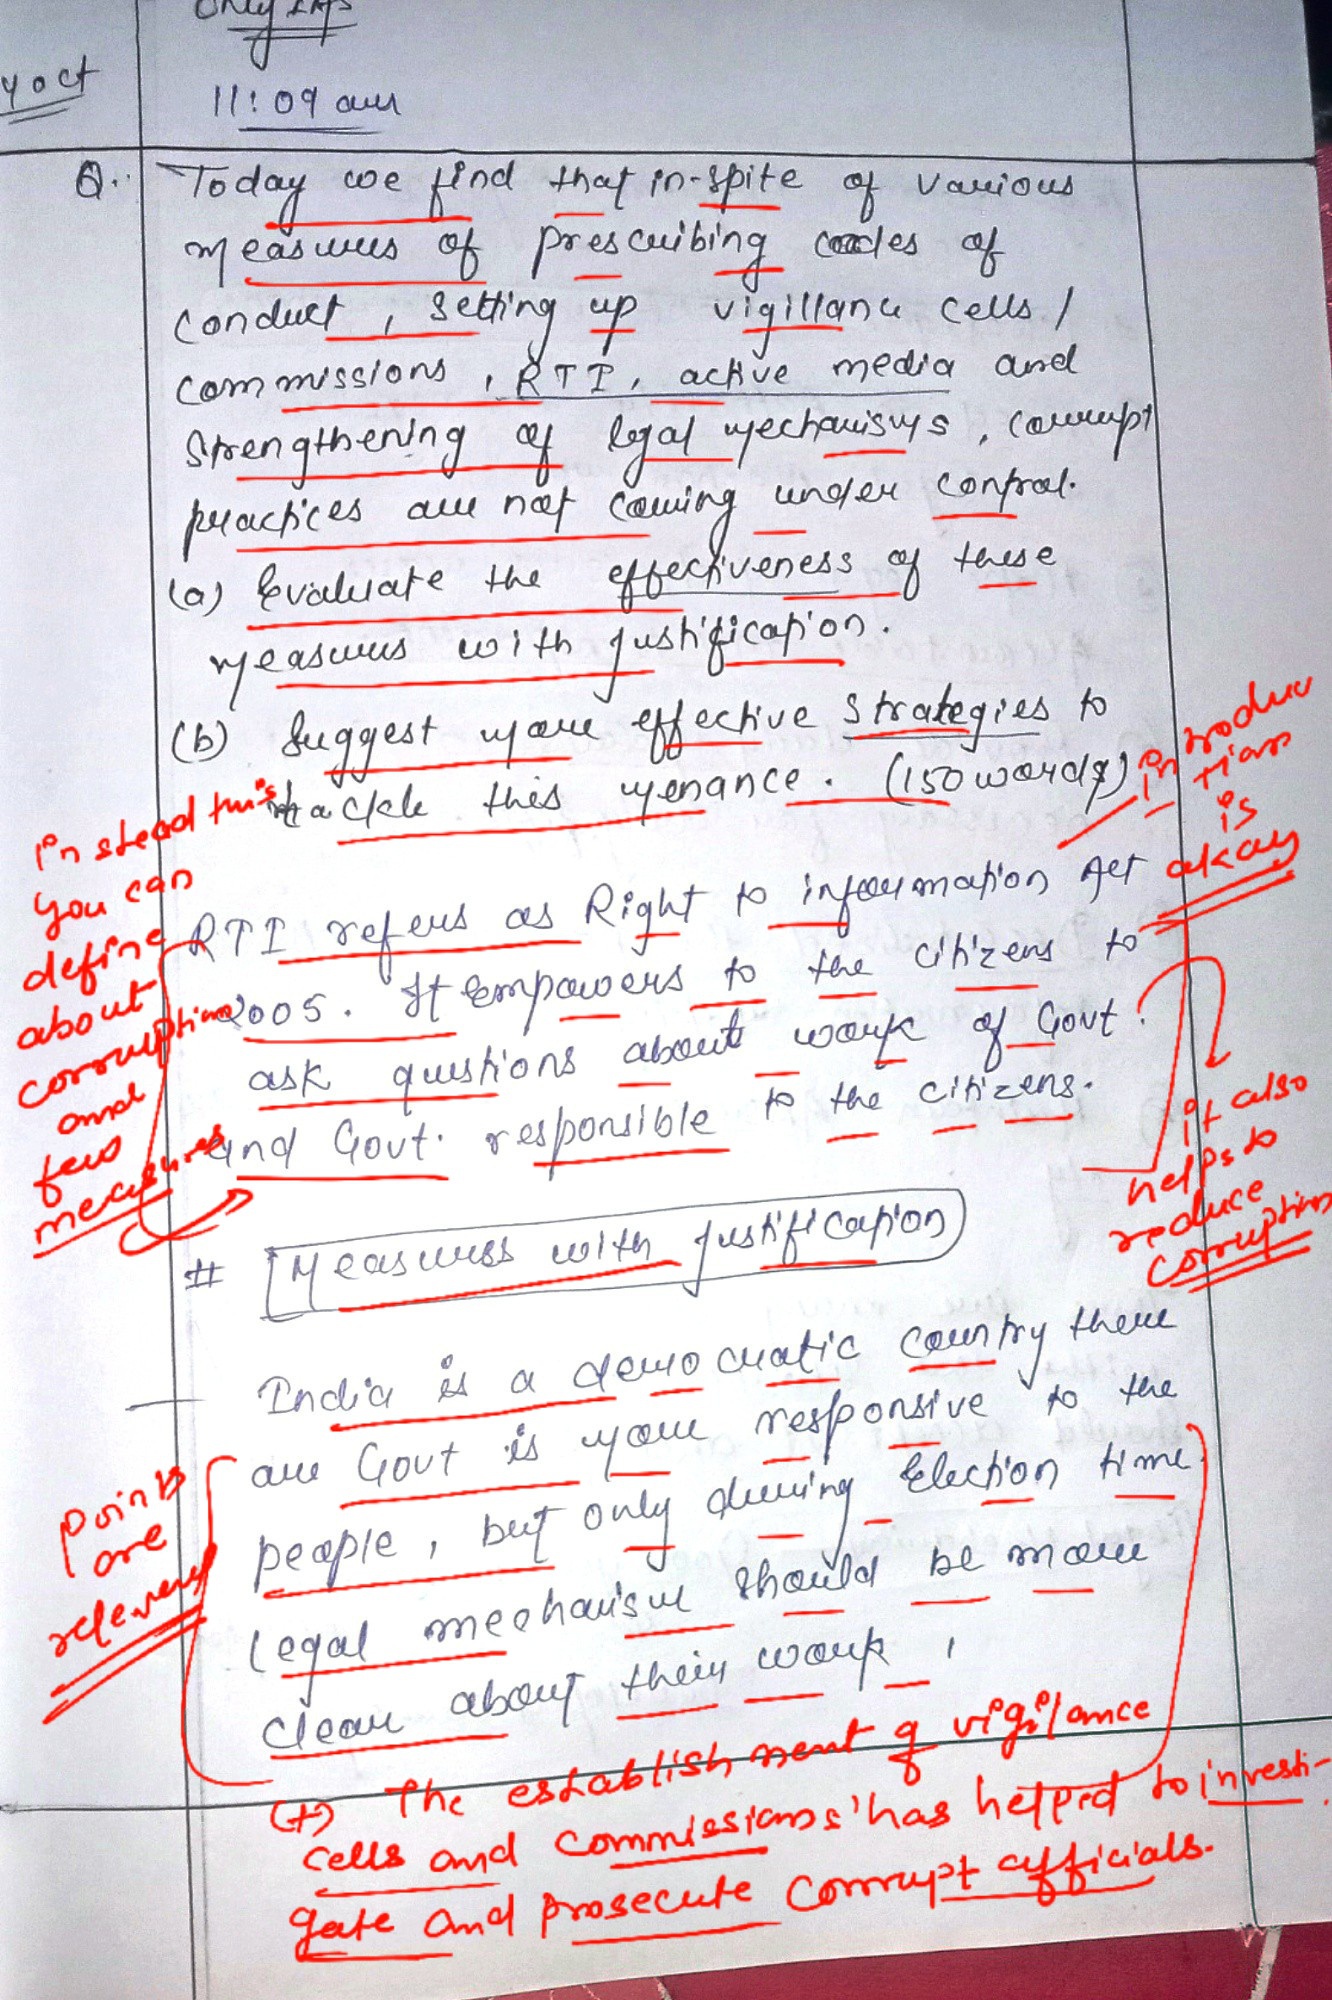 Only IAS
4 oct
11:09 am
Q. Today we find that in-spite of various
measures of prescribing codes of
conduct, setting up vigillance cells/
commissions, RTI, active media and
strengthening of legal mechanisms, corrupt
practices are not coming under control.
(a) Evaluate the effectiveness of these
measures with justification.
(b) Suggest more effective strategies to
tackle this menance. (150 words)
introduc
tion
is
okay
instead this
you can
define
about
corruption
and
few
measures
RTI refers as Right to information Act
2005. It empowers to the citizens to
ask questions about work of Govt.
and Govt. responsible to the citizens.
it also
helps to
reduce
corruption
# Measuress with justification
India is a democratic country there
are Govt is more responsive to the
people, but only during Election time.
Legal mechanism should be more
clear about their work,
points
are
relevant
(+) The establishment of vigilance
cells and commissions' has helped to investi-
gate and prosecute corrupt officials.